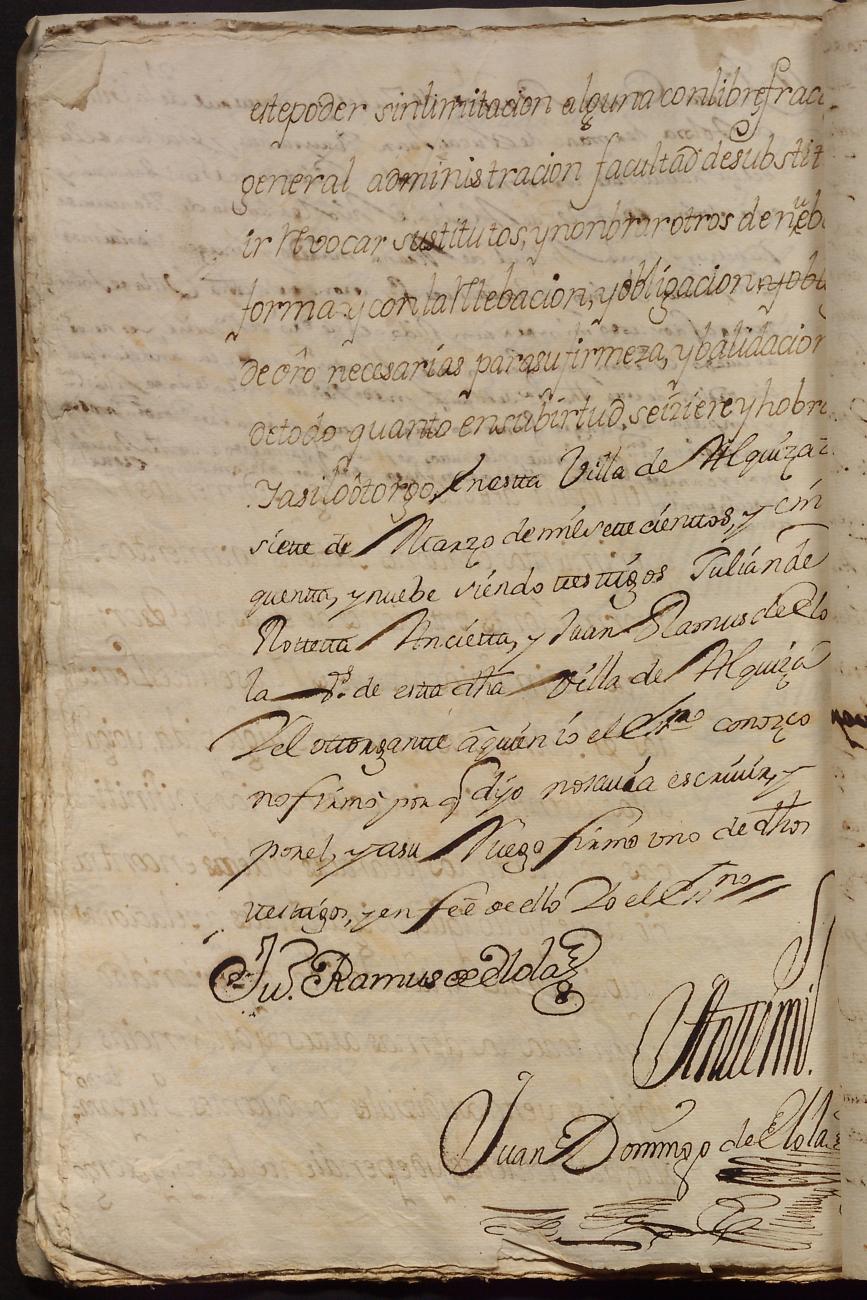 este poder sin limitacion alguna con libre frac
general administracion facultad de substit
ir Revocar sustitutos, y nonbrar otros de nueb
forma y con la Relebacion, y obligacion
de dro necesarias para su firmeza, y balidacion
de todo quanto en su birtud, se iziere y hobra
Y asi lo otorgo, En esta Villa de Alquiza a
siette de Marzo de mil sette cienttos, y cin
quentta, y nuebe siendo testtigos Julian de
Rottetta Ancietta, y Juan Ramus de Elo
la Vs. de esta dha Villa de Alquiza
Y el ottorgantte a quien io el Essno conozco
no firmo por q dijo no savia escrivir, y
por el, y a su Ruego firmo uno de dhos
testtigos, y en fee de ello Yo el Essno
Ju. Ramus de Elola
Antte mi
Juan Domingo de Elola